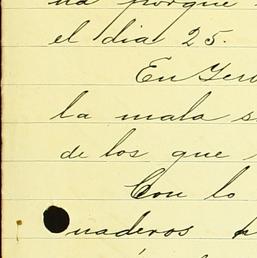 na porque
el dia 25.
En
la mala
de los que
Con lo
uaderos